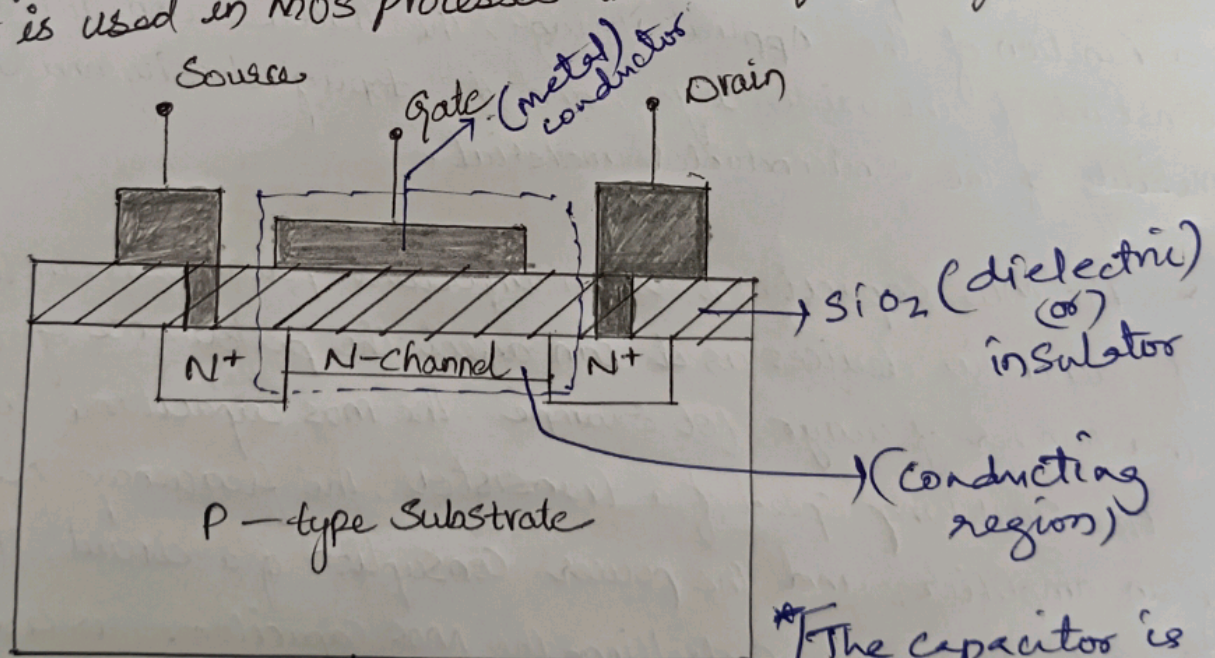 is used in MOS processes
Source
Gate (metal)
conductor
Drain
SiO2 (dielectric)
(or)
insulator
N+
N-Channel
N+
(conducting
region)
P-type Substrate
*The capacitor is